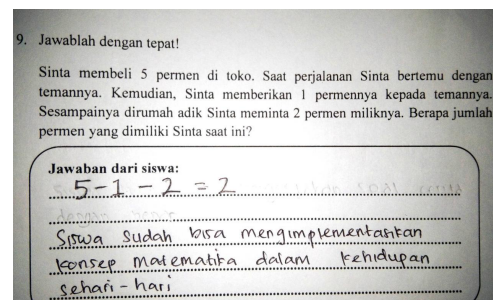 9. Jawablah dengan tepat!
Sinta membeli 5 permen di toko. Saat perjalanan Sinta bertemu dengan
temannya. Kemudian, Sinta memberikan 1 permennya kepada temannya.
Sesampainya dirumah adik Sinta meminta 2 permen miliknya. Berapa jumlah
permen yang dimiliki Sinta saat ini?
Jawaban dari siswa:
5-1-2 = 2
Siswa sudah bisa mengimplementasikan
konsep matematika dalam kehidupan
sehari-hari